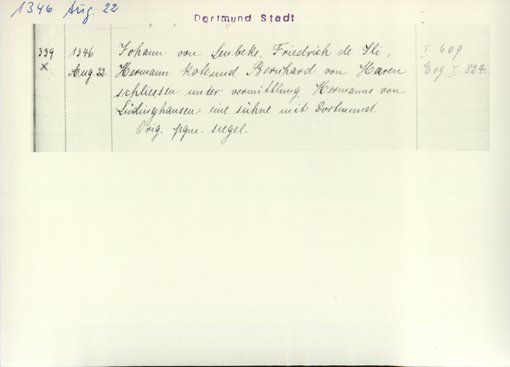 1346 Aug 22
Dortmund Stadt
339 1346 Johann von Lenbeke, Friedrich de Ili, I. 609
X. Aug. 22. Hermann Kole und Bernhard von Haren Erg. I. 824.
schliessen unter vermittlung Hermanns von
Lüdinghausen eine sühne mit Dortmund.
Orig. pgm. siegel.